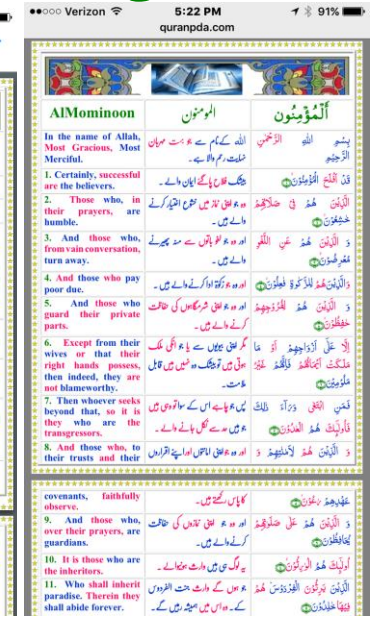 Verizon 5:22 PM 91%
quranpda.com
AlMominoon المومنون أَلْمُؤْمِنُون
In the name of Allah,
Most Gracious, Most
Merciful.
اللہ کے نام سے جو بہت مہربان
نہایت رحم والا ہے۔
بِسْمِ اللهِ الرَّحْمٰنِ
الرَّحِيْمِ
1. Certainly, successful
are the believers.
بیشک فلاح پا گئے ایمان والے۔
قَدْ اَفْلَحَ الْمُؤْمِنُوْنَ
2. Those who, in
their prayers, are
humble.
وہ جو اپنی نماز میں خشوع اختیار کرنے
والے ہیں۔
الَّذِيْنَ هُمْ فِيْ صَلَاتِهِمْ
خٰشِعُوْنَ
3. And those who,
from vain conversation,
turn away.
اور وہ جو لغو باتوں سے منہ پھیرنے
والے ہیں۔
وَ الَّذِيْنَ هُمْ عَنِ اللَّغْوِ
مُعْرِضُوْنَ
4. And those who pay
poor due.
اور وہ جو زکوٰۃ ادا کرنے والے ہیں۔
وَ الَّذِيْنَ هُمْ لِلزَّكٰوةِ فٰعِلُوْنَ
5. And those who
guard their private
parts.
اور وہ جو اپنی شرمگاہوں کی حفاظت
کرنے والے ہیں۔
وَ الَّذِيْنَ هُمْ لِفُرُوْجِهِمْ
حٰفِظُوْنَ
6. Except from their
wives or that their
right hands possess,
then indeed, they are
not blameworthy.
مگر اپنی بیویوں سے یا جو انکی ملک
ہوتی ہیں تو بیشک وہ نہیں ہیں قابل
ملامت۔
اِلَّا عَلٰٓى اَزْوَاجِهِمْ اَوْ مَا
مَلَكَتْ اَيْمَانُهُمْ فَاِنَّهُمْ غَيْرُ
مَلُوْمِيْنَ
7. Then whoever seeks
beyond that, so it is
they who are the
transgressors.
پس جو چاہے اس کے سوا تو وہی ہیں
جو ہیں حد سے نکل جانے والے۔
فَمَنِ ابْتَغٰى وَرَآءَ ذٰلِكَ
فَاُولٰٓئِكَ هُمُ الْعٰدُوْنَ
8. And those who, to
their trusts and their
اور وہ جو اپنی امانتوں اور اپنے اقراروں
وَ الَّذِيْنَ هُمْ لِاَمٰنٰتِهِمْ وَ
covenants, faithfully
observe.
کا پاس رکھتے ہیں۔
عَهْدِهِمْ رٰعُوْنَ
9. And those who,
over their prayers, are
guardians.
اور وہ جو اپنی نمازوں کی حفاظت
کرنے والے ہیں۔
وَ الَّذِيْنَ هُمْ عَلٰى صَلَوٰتِهِمْ
يُحَافِظُوْنَ
10. It is those who are
the inheritors.
یہ لوگ ہی ہیں وارث ہونیوالے۔
اُولٰٓئِكَ هُمُ الْوٰرِثُوْنَ
11. Who shall inherit
paradise. Therein they
shall abide forever.
جو ہوں گے وارث جنت الفردوس
کے۔ وہ اس میں ہمیشہ رہیں گے۔
الَّذِيْنَ يَرِثُوْنَ الْفِرْدَوْسَ هُمْ
فِيْهَا خٰلِدُوْنَ